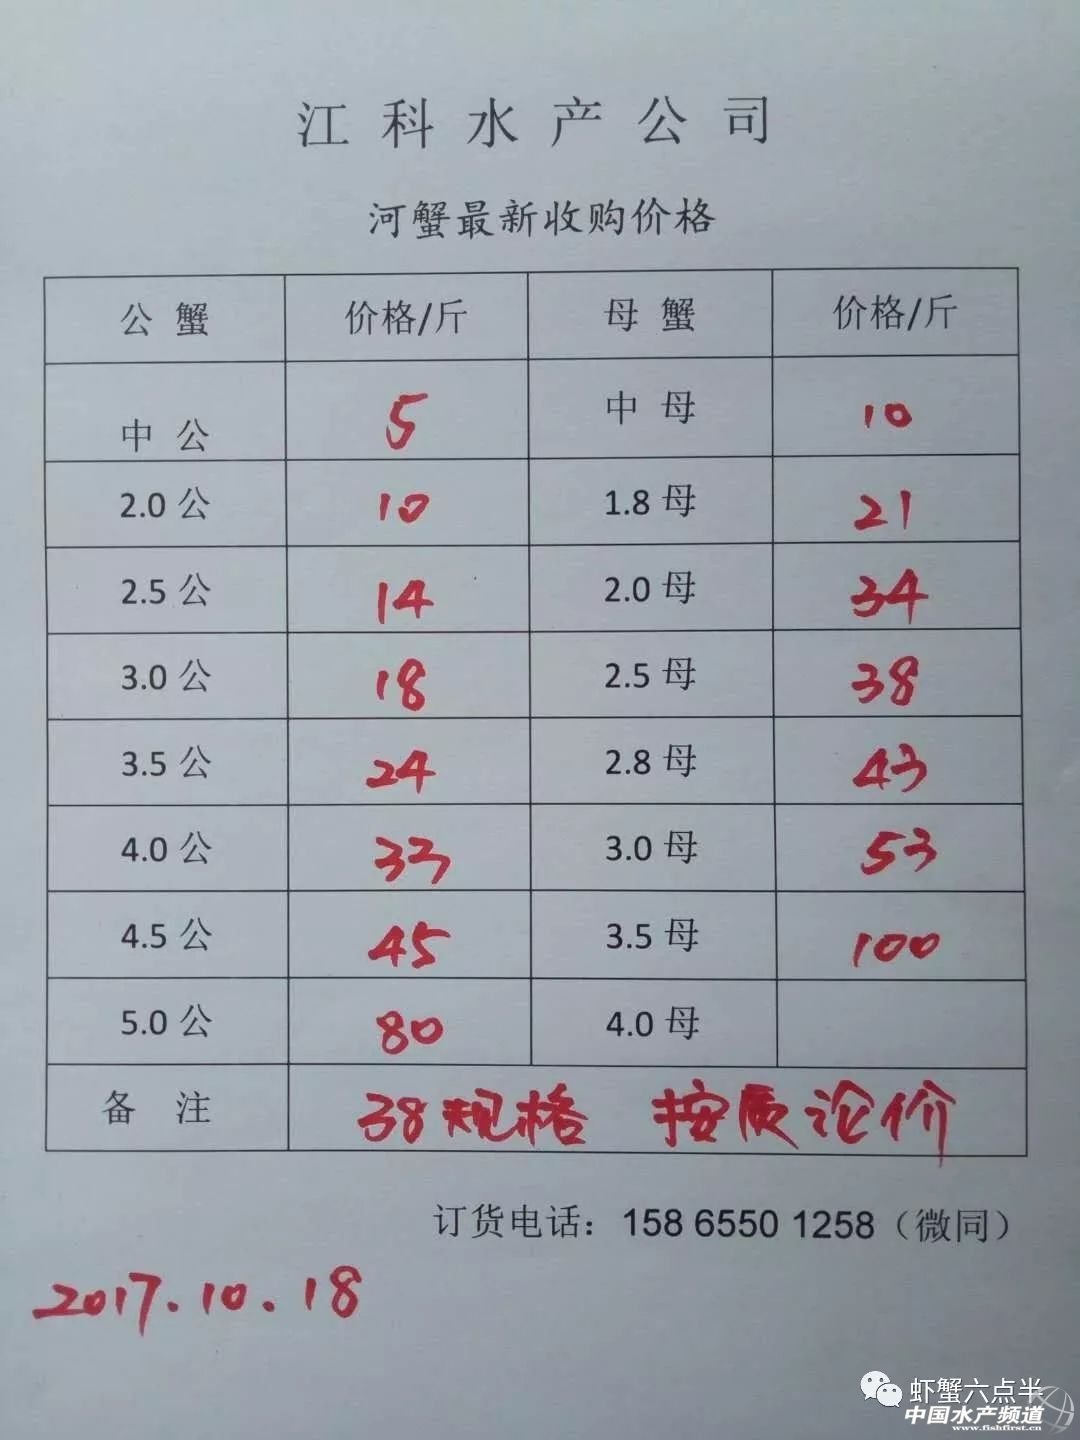 江科水产公司
河蟹最新收购价格
公 蟹 价格/斤 母 蟹 价格/斤
中 公 5 中 母 10
2.0 公 10 1.8 母 21
2.5 公 14 2.0 母 34
3.0 公 18 2.5 母 38
3.5 公 24 2.8 母 43
4.0 公 33 3.0 母 53
4.5 公 45 3.5 母 100
5.0 公 80 4.0 母
备 注 38规格 按质论价
订货电话：158 6550 1258（微同）
2017.10.18
虾蟹六点半
中国水产频道
www.fishfirst.cn